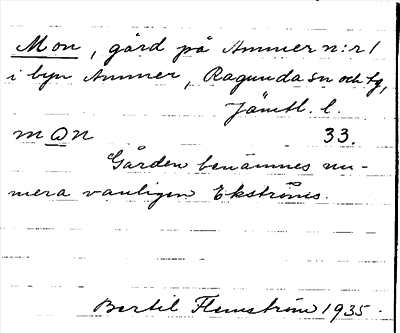 Mon, gård på Ammer n:r 1
i byn Ammer, Ragunda sn och tg,
Jämtl. l.
mɷn 33.
Gården benämnes nu-
mera vanligen Ekströms.
Bertil Flemström 1935.